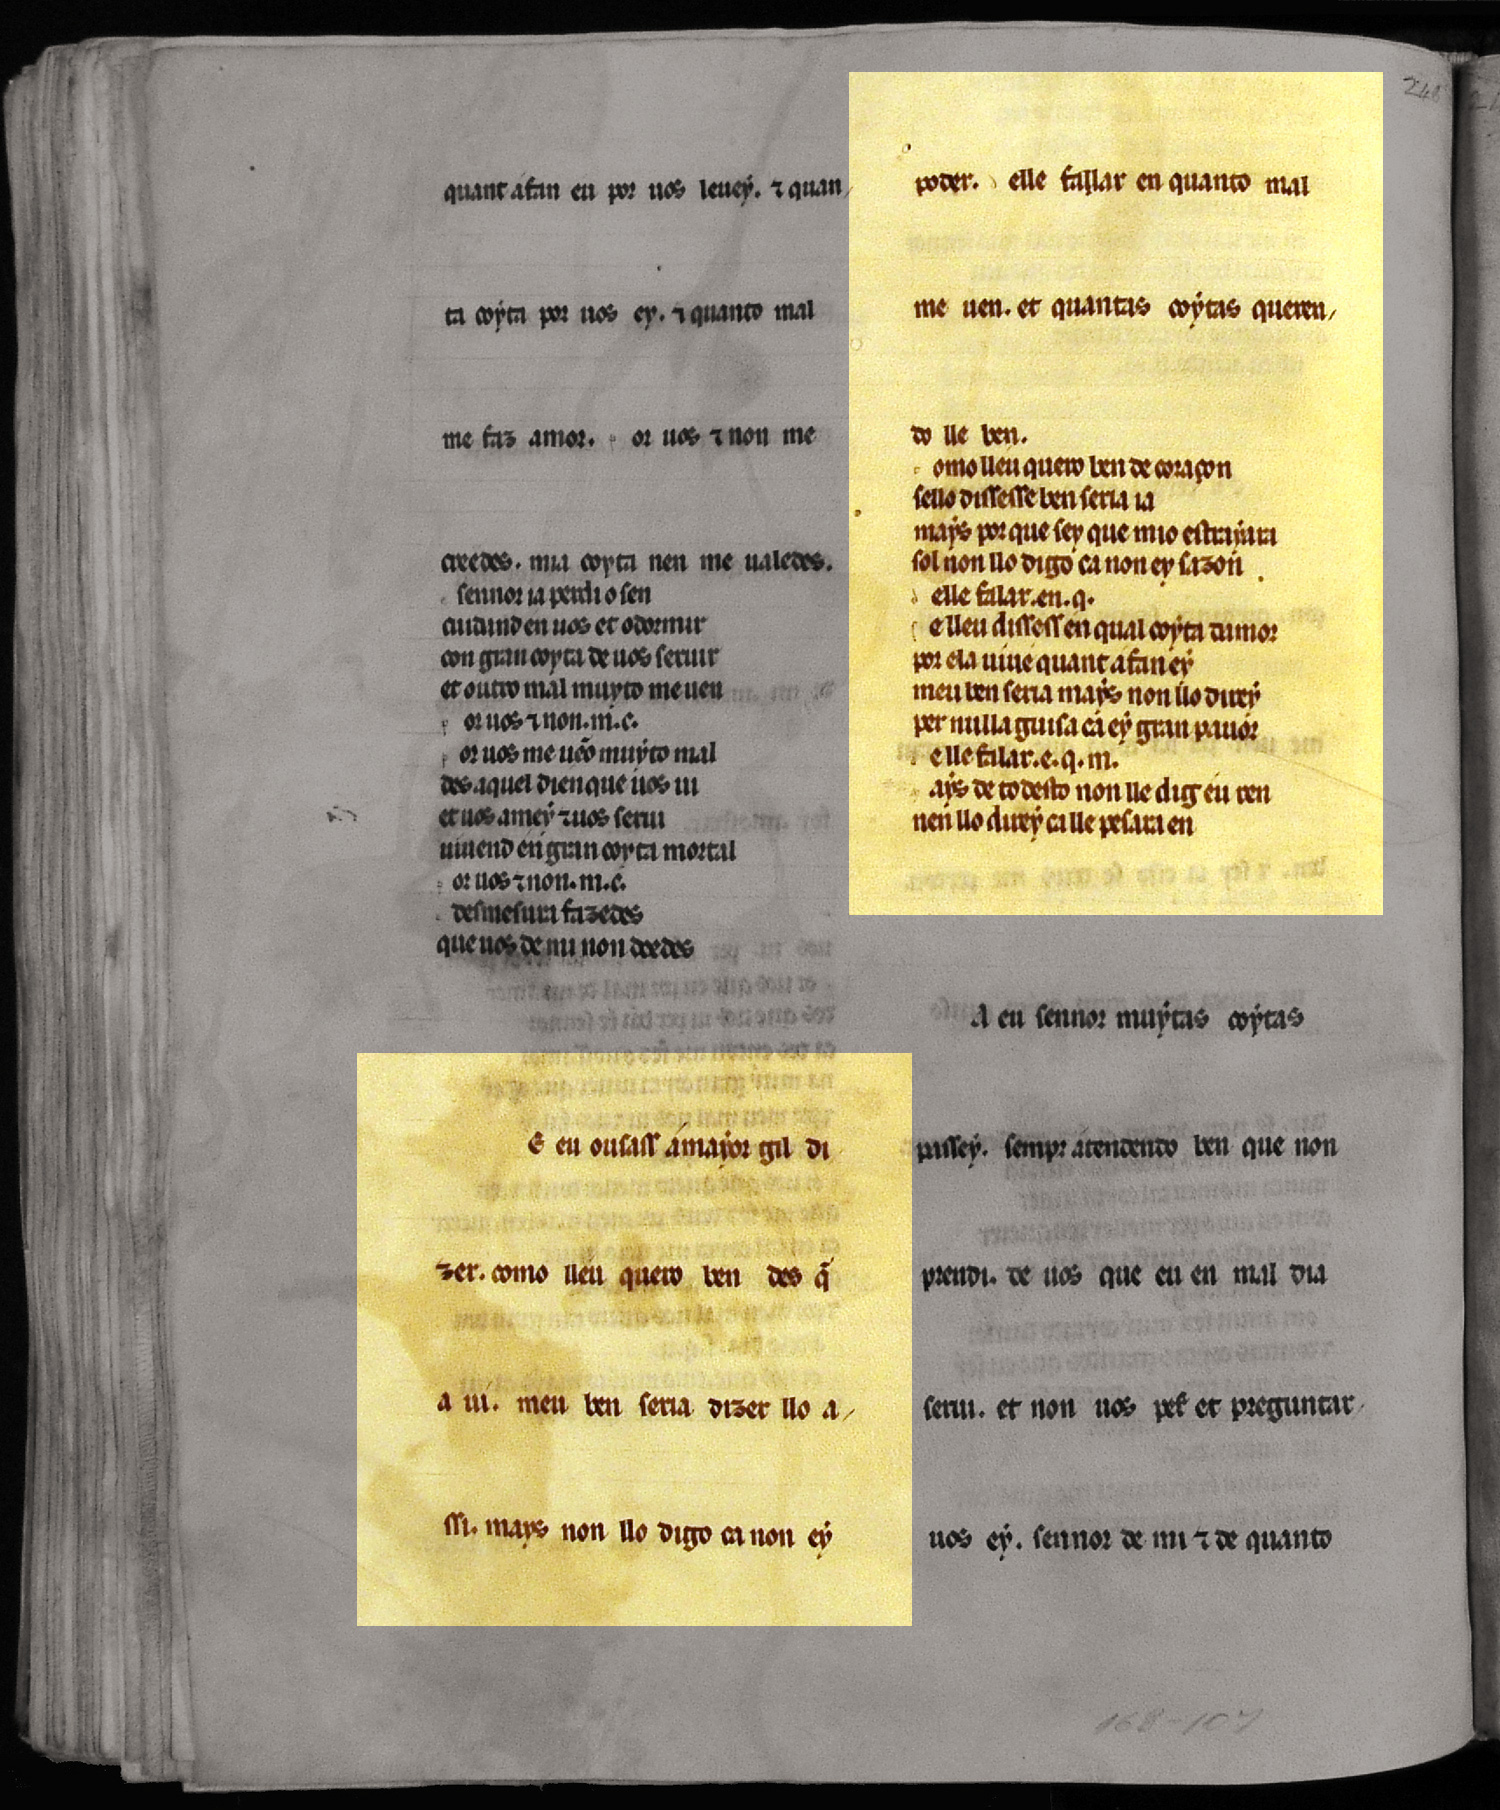 quant afan eu por uos leuey. ⁊ quan/
ta coyta por uos ey. ⁊ quanto mal
me faz amor. or uos ⁊ non me
creedes. mia coyta nen me ualedes.
sennor ia perdi o sen
cuidand en uos et o dormir
con gran coyta de uos seruir
et outro mal muyto me uen
or uos ⁊ non.m.c.
or uos me uẽo muyto mal
des aquel dien que uos ui
et uos amey ⁊ uos serui
uiuend en gran coyta mortal
or uos ⁊ non.m.c.
desmesura fazedes
que uos de mi non doedes
E eu ousass a mayor gil di
zer. como lleu quero ben des q̃
a ui. meu ben seria dizer llo a/
ssi. mays non llo digo ca non ey
poder. elle fallar en quanto mal
me uen. et quantas coytas queren/
do lle ben.
omo lleu quero ben de coraçon
sello dissesse ben seria ia
mays por que sey que mio estrayara
sol non llo digo ca non ey sazon
elle falar.en.q.
e lleu dissess en qual coyta damor
por ela uiue quant afan ey
meu ben seria mays non llo direy
per nulla guisa ca ey gran pauor
e lle falar.e.q.m.
ays de todesto non lle dig eu ren
nen llo direy ca lle pesara en
A eu sennor muytas coytas
passey. sempr atendendo ben que non
prendi. de uos que eu en mal dia
serui. et non uos pes et preguntar
uos ey. sennor de mi ⁊ de quanto
168-107